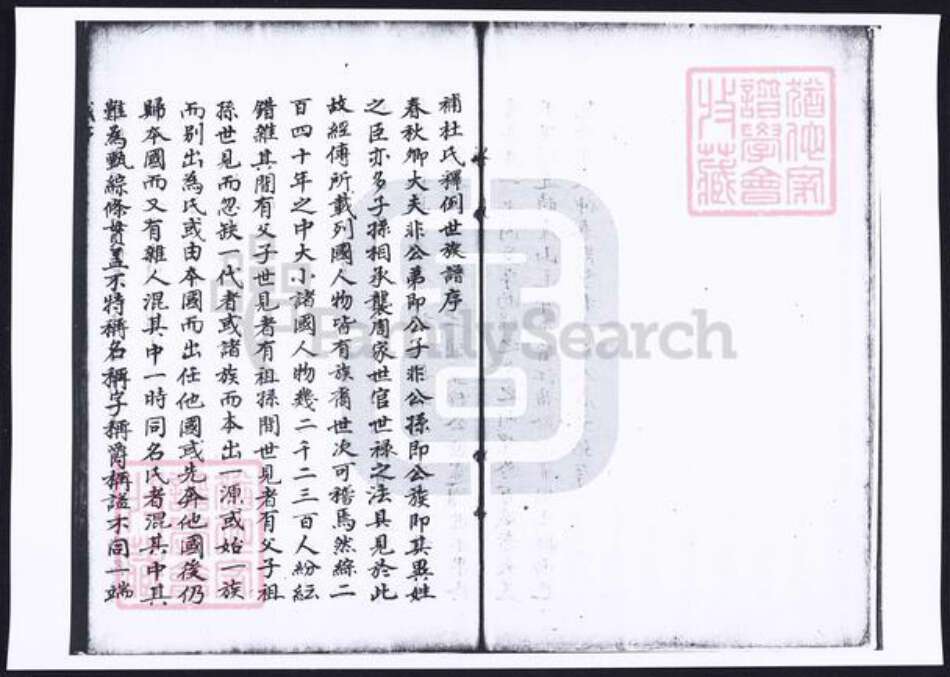 補杜氏釋例世族譜序
春秋卿大夫非公弟即公子非公孫即公族即其異姓
之臣亦多子孫相承襲周家世官世祿之法具見於此
故經傳所載列國人物皆有族屬世次可稽焉然綜二
百四十年之中大小諸國人物幾二千二三百人紛紜
錯雜其間有父子世見者有祖孫間世見者有父子祖
孫世見而忽缺一代者或諸族而本出一源或始一族
而別出為氏或由本國而出任他國或先奔他國後仍
歸本國而又有雜人混其中一時同名氏者混其中其
難為甄綜條貫葢不特稱名稱字稱爵稱諡不同一端
FamilySearch